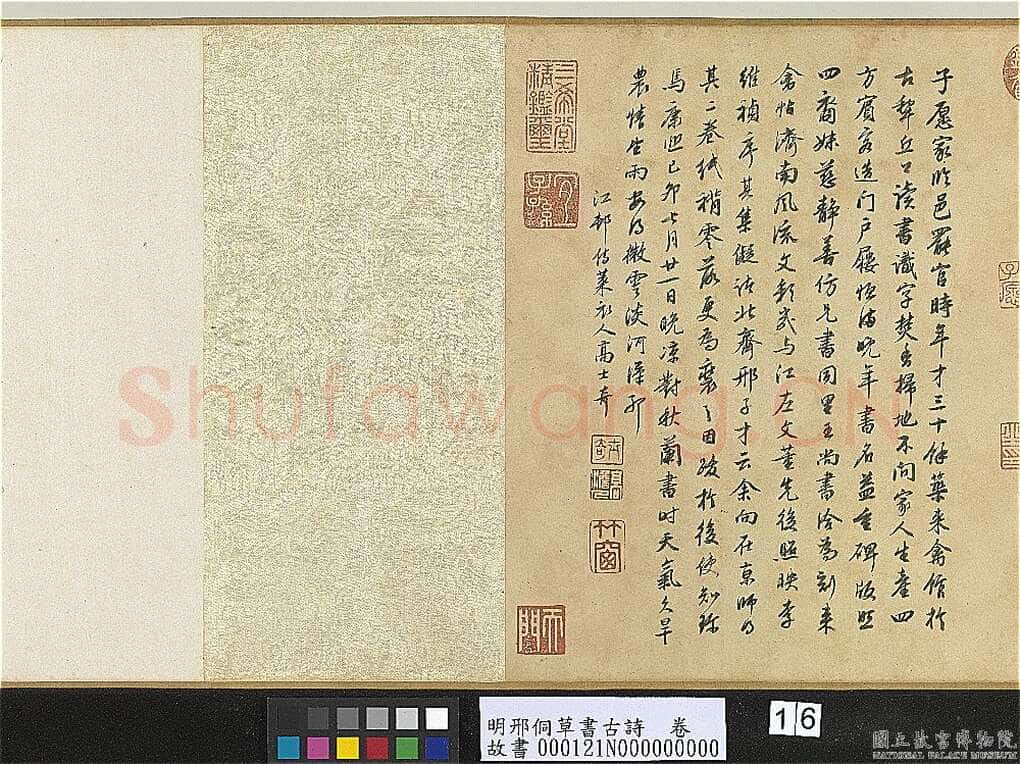 子愿家临邑罷官時年才三十餘築来禽館於
古犁丘上读書識字焚香掃地不問家人生産四
方賓客造门户屨恒满晚年書名益重碑版照
四裔妹慈静善仿兄書同里王尚書洽為刻来
禽帖濟南風流文彩笺与江左文董先後照映李
維禎序其集儗诸北齊邢子才云余向在京師得
其二卷纸稍零落更為裝之因跋於後使知珎
焉康熙己卯七月廿一日晚凉對秋蘭書时天氣久旱
農情望雨安得微雲淡河漢耶
江邨侍萊衣人高士奇
三希堂
精鑑璽
宜
子孫
士
奇
高
竹
窗
子愿
Shufawang.CN
明邢侗草書古詩 卷
故書 000121N000000000
16
國立故宮博物院
NATIONAL PALACE MUSEUM